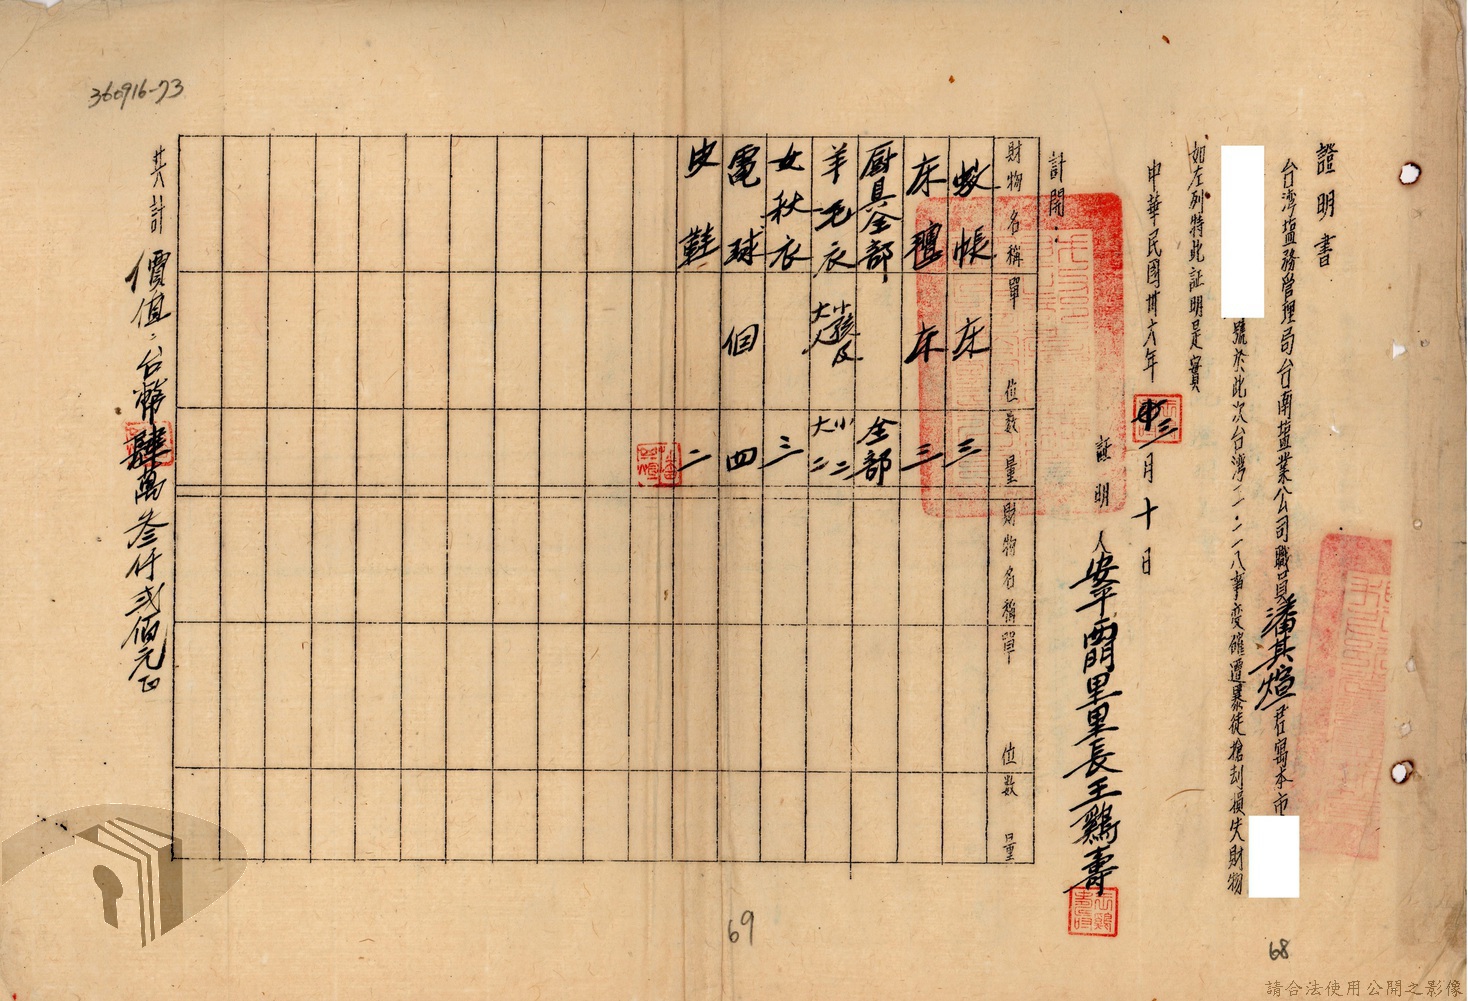 證明書
台湾塩務管理局台南塩業公司職員潘其煊君寓本市
號於此次台湾二·二八事变催遭暴徒搶刦損失財物
如左列特此証明是實
中華民國卅六年三月十日
証明人安平西門里里長王鷄壽
計開：
財物名稱 單位 數量 財物名稱 單位 數量
蚊帳 床 三
床氊 床 三
厨具全部 全部
羊毛衣 小孩及大人 小二大二
女秋衣 三
電球 個 四
皮鞋 二
共計 價值：台幣肆萬叁仟弍佰元正
360916-73
69
68
請合法使用公開之影像